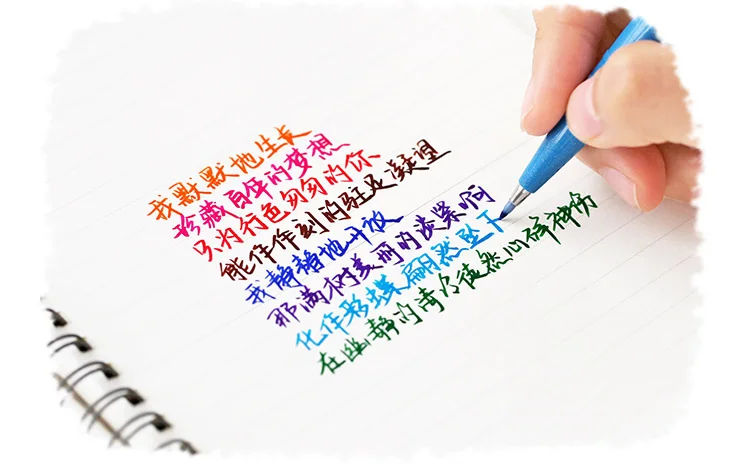 我默默地生长
珍藏自体的梦想
只为行色匆匆的你
能作作刻的驻足凝望
我静静地开放
那满树美丽的淡紫啊
化作彩蝶翩然坠下
在幽静的清冷徒然心碎神伤